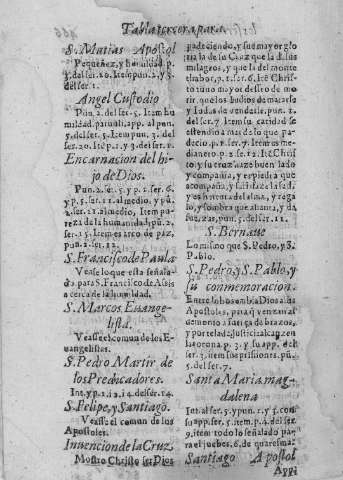 Tabla tercera para
S. Matias Apostol
Pequeñez, y humildad. p.
3. del ser. 20. Itẽ pũ. 2. y 3.
del ser. 1.
Angel Custodio
Pun. 2. del ser. 5. Item hu
mildad. paruuli, app. al pun.
5. del ser. 5. Item pun. 3. del
ser. 20. Itẽ p. 1. y 3. del ser. 9.
Encarnacion del hi-
jo de Dios.
Pun. 2. ser. 5. y p. 2. ser. 6.
y p. 5. ser. 11. al medio, y pũ.
2. ser. 21. al medio, Item pu
reza de la humanidad, pũ. 2.
ser. 15. Item es arco de paz,
pun. 2. ser. 12.
S. Francisco de Paula
Vease lo que esta señala-
do para S. Francisco de Asis
acerca de la humildad.
S. Marcos Euange-
lista.
Veasse el comun de los E-
uangelistas.
S. Pedro Martir de
los Predicadores.
Int. y p. 1. 2, i 4. del ser. 14.
S. Felipe, y Santiago.
Veasse el comun de los
Apostoles.
Inuencion de la Cruz.
Mostro Christo ser Dios
padeciendo, y su mayor glo
ria la de su Cruz que la de sus
milagros, y que la del monte
thabor, p. 1. ser. 6. Itẽ Chris-
to tuuo mayor deseo de mo-
rir, que los Iudios de matarle
y Iudas de venderle, pun. 2.
ser. 7. Item su caridad se
estendio a mas de lo que pa-
decio, p. 1. ser. 7. Item es me-
dianero. p. 2. ser. 12. Itẽ Chris
to, y su cruz fue buen lado
y compañia, y es piedra que
acompaña, y satisface la sed,
y es herida al alma, y rega-
lo, y sombra que ahuma, y da
fuerzas, pun. 5. del ser. 11.
S. Bernaue
Lo mismo que S. Pedro, y S.
Pablo.
S. Pedro, y S. Pablo, y
su conmemoracion.
Entre los bombra Dios a los
Apostoles, para q̃ venzan al
demonio a fuerça de brazos,
y por el a la justicia alcaçen
la honra. p. 3. y su app. del
ser. 3. item sus prisiones, pũ.
5. del ser. 7.
Santa Maria mag-
dalena
Int. al ser. 5. y pun. 1. y 5. con
su app. ser. 5. item p. 4. del ser.
9. item todo lo señalado pa-
ra el jueues. 6. de quaresma.
Santiago Apostol
Appi